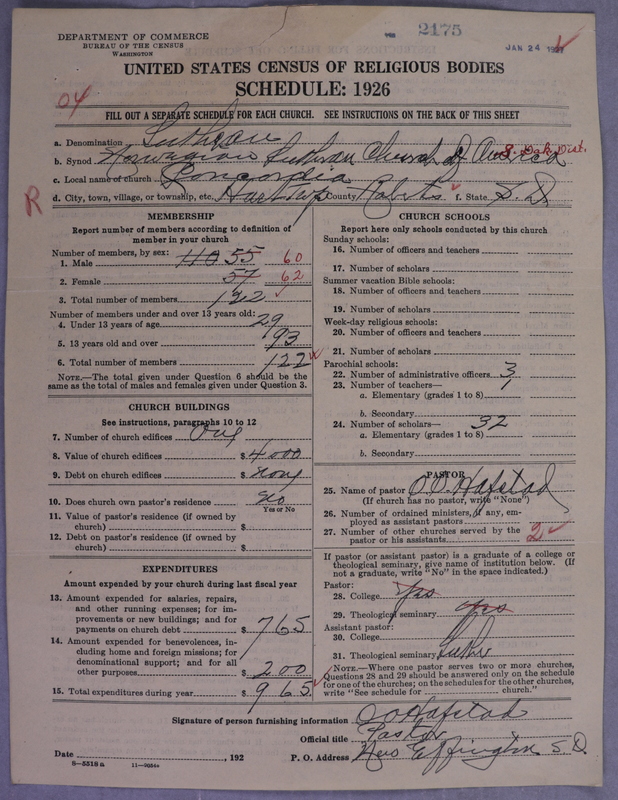 DEPARTMENT OF COMMERCE
BUREAU OF THE CENSUS
WASHINGTON
2175
JAN 24 1927
UNITED STATES CENSUS OF RELIGIOUS BODIES
SCHEDULE: 1926
04
FILL OUT A SEPARATE SCHEDULE FOR EACH CHURCH. SEE INSTRUCTIONS ON THE BACK OF THIS SHEET
a. Denomination Lutheran
b. Synod Norwegian Lutheran Church of America S. Dak. Dist.
c. Local name of church Concordia
R
d. City, town, village, or township, etc. Hart Twp County Roberts f. State S. D.
MEMBERSHIP
Report number of members according to definition of
member in your church
Number of members, by sex:
1. Male 55 60
2. Female 57 62
3. Total number of members 122
Number of members under and over 13 years old:
4. Under 13 years of age 29
5. 13 years old and over 93
6. Total number of members 122
NOTE.—The total given under Question 6 should be the
same as the total of males and females given under Question 3.
CHURCH BUILDINGS
See instructions, paragraphs 10 to 12
7. Number of church edifices One
8. Value of church edifices $ 4000
9. Debt on church edifices $ none
10. Does church own pastor's residence no
Yes or No
11. Value of pastor's residence (if owned by
church) $
12. Debt on pastor's residence (if owned by
church) $
EXPENDITURES
Amount expended by your church during last fiscal year
13. Amount expended for salaries, repairs,
and other running expenses; for im-
provements or new buildings; and for
payments on church debt $ 765
14. Amount expended for benevolences, in-
cluding home and foreign missions; for
denominational support; and for all
other purposes $ 200
15. Total expenditures during year $ 965
CHURCH SCHOOLS
Report here only schools conducted by this church
Sunday schools:
16. Number of officers and teachers
17. Number of scholars
Summer vacation Bible schools:
18. Number of officers and teachers
19. Number of scholars
Week-day religious schools:
20. Number of officers and teachers
21. Number of scholars
Parochial schools:
22. Number of administrative officers 3
23. Number of teachers— 1
a. Elementary (grades 1 to 8)
b. Secondary
24. Number of scholars— 32
a. Elementary (grades 1 to 8)
b. Secondary
PASTOR
25. Name of pastor O. O. Hafstad
(If church has no pastor, write "None")
26. Number of ordained ministers, if any, em-
ployed as assistant pastors
27. Number of other churches served by the
pastor or his assistants 2
If pastor (or assistant pastor) is a graduate of a college or
theological seminary, give name of institution below. (If
not a graduate, write "No" in the space indicated.)
Pastor:
28. College yes
29. Theological seminary yes
Assistant pastor:
30. College
31. Theological seminary Luther
NOTE.—Where one pastor serves two or more churches,
Questions 28 and 29 should be answered only on the schedule
for one of the churches; on the schedules for the other churches,
write "See schedule for church."
Signature of person furnishing information O O Hafstad
Official title Pastor
Date , 192 P. O. Address New Effington S. D.
8—5518 a 11—9054